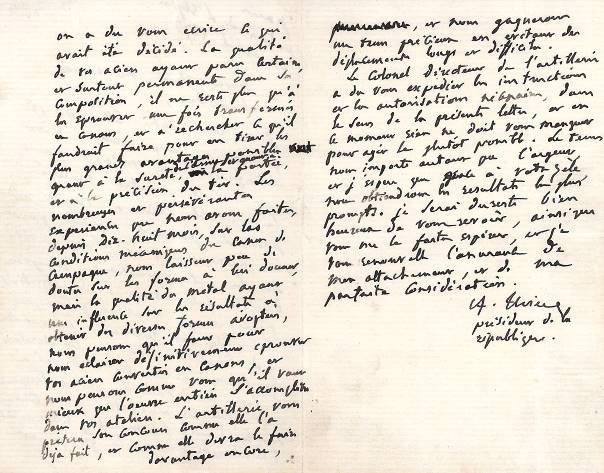 on a du vous écrire ce qui
avait été décidé. La qualité
de vos aciers ayant paru certaine
et surtout permanente dans sa
composition, il ne reste plus qu'à
les éprouver une fois transformés
en canons, et à rechercher ce qu'il
faudrait faire pour en tirer les
plus grands avantages possibles
quant à la sureté, à la portée,
et à la précision du tir. Les
nombreuses et persévérantes
expériences que nous avons faites,
depuis dix-huit mois, sur les
conditions mécaniques du canon de
campagne, nous laissent peu de
doutes sur les formes à lui donner,
mais la qualité du métal ayant
une influence sur les résultats à
obtenir des diverses formes adoptées,
nous pensons qu'il faut pour
nous éclairer définitivement éprouver
vos aciers convertis en canons, et
nous pensons comme vous qu'il vaut
mieux que l'oeuvre entière s'accomplisse
dans vos ateliers. L'artillerie vous
prêtera son concours comme elle l'a
déjà fait, et comme elle devra le faire
davantage encore,
et nous gagnerons
un tems précieux en évitant des
déplacements longs et difficiles.
Le Colonel directeur de l'artillerie
a du vous expédier les instructions
et les autorisations nécessaires, dans
le sens de la présente lettre, et en
ce moment rien ne doit vous manquer
pour agir le plutot possible. Le tems
nous importe autant que l'argent
et j'espère que grace à votre zèle
nous obtiendrons les résultats les plus
prompts. Je serai du reste bien
heureux de vous revoir, ainsi que
vous me le faites espérer, et je
vous renouvelle l'assurance de
mon attachement, et de ma
parfaite considération.
A. Thiers
président de la
république.